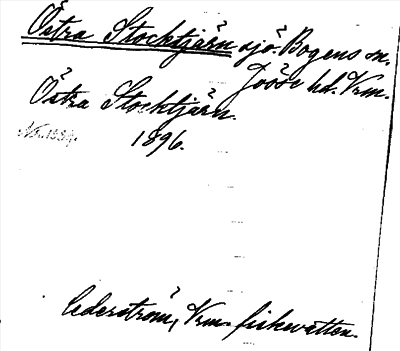 Östra Stocktjärn sjö. Bogens sn.
Jösse hd. Vrm.
Östra Stocktjärn.
1896.
Cederström, Vrm. fiskevatten.